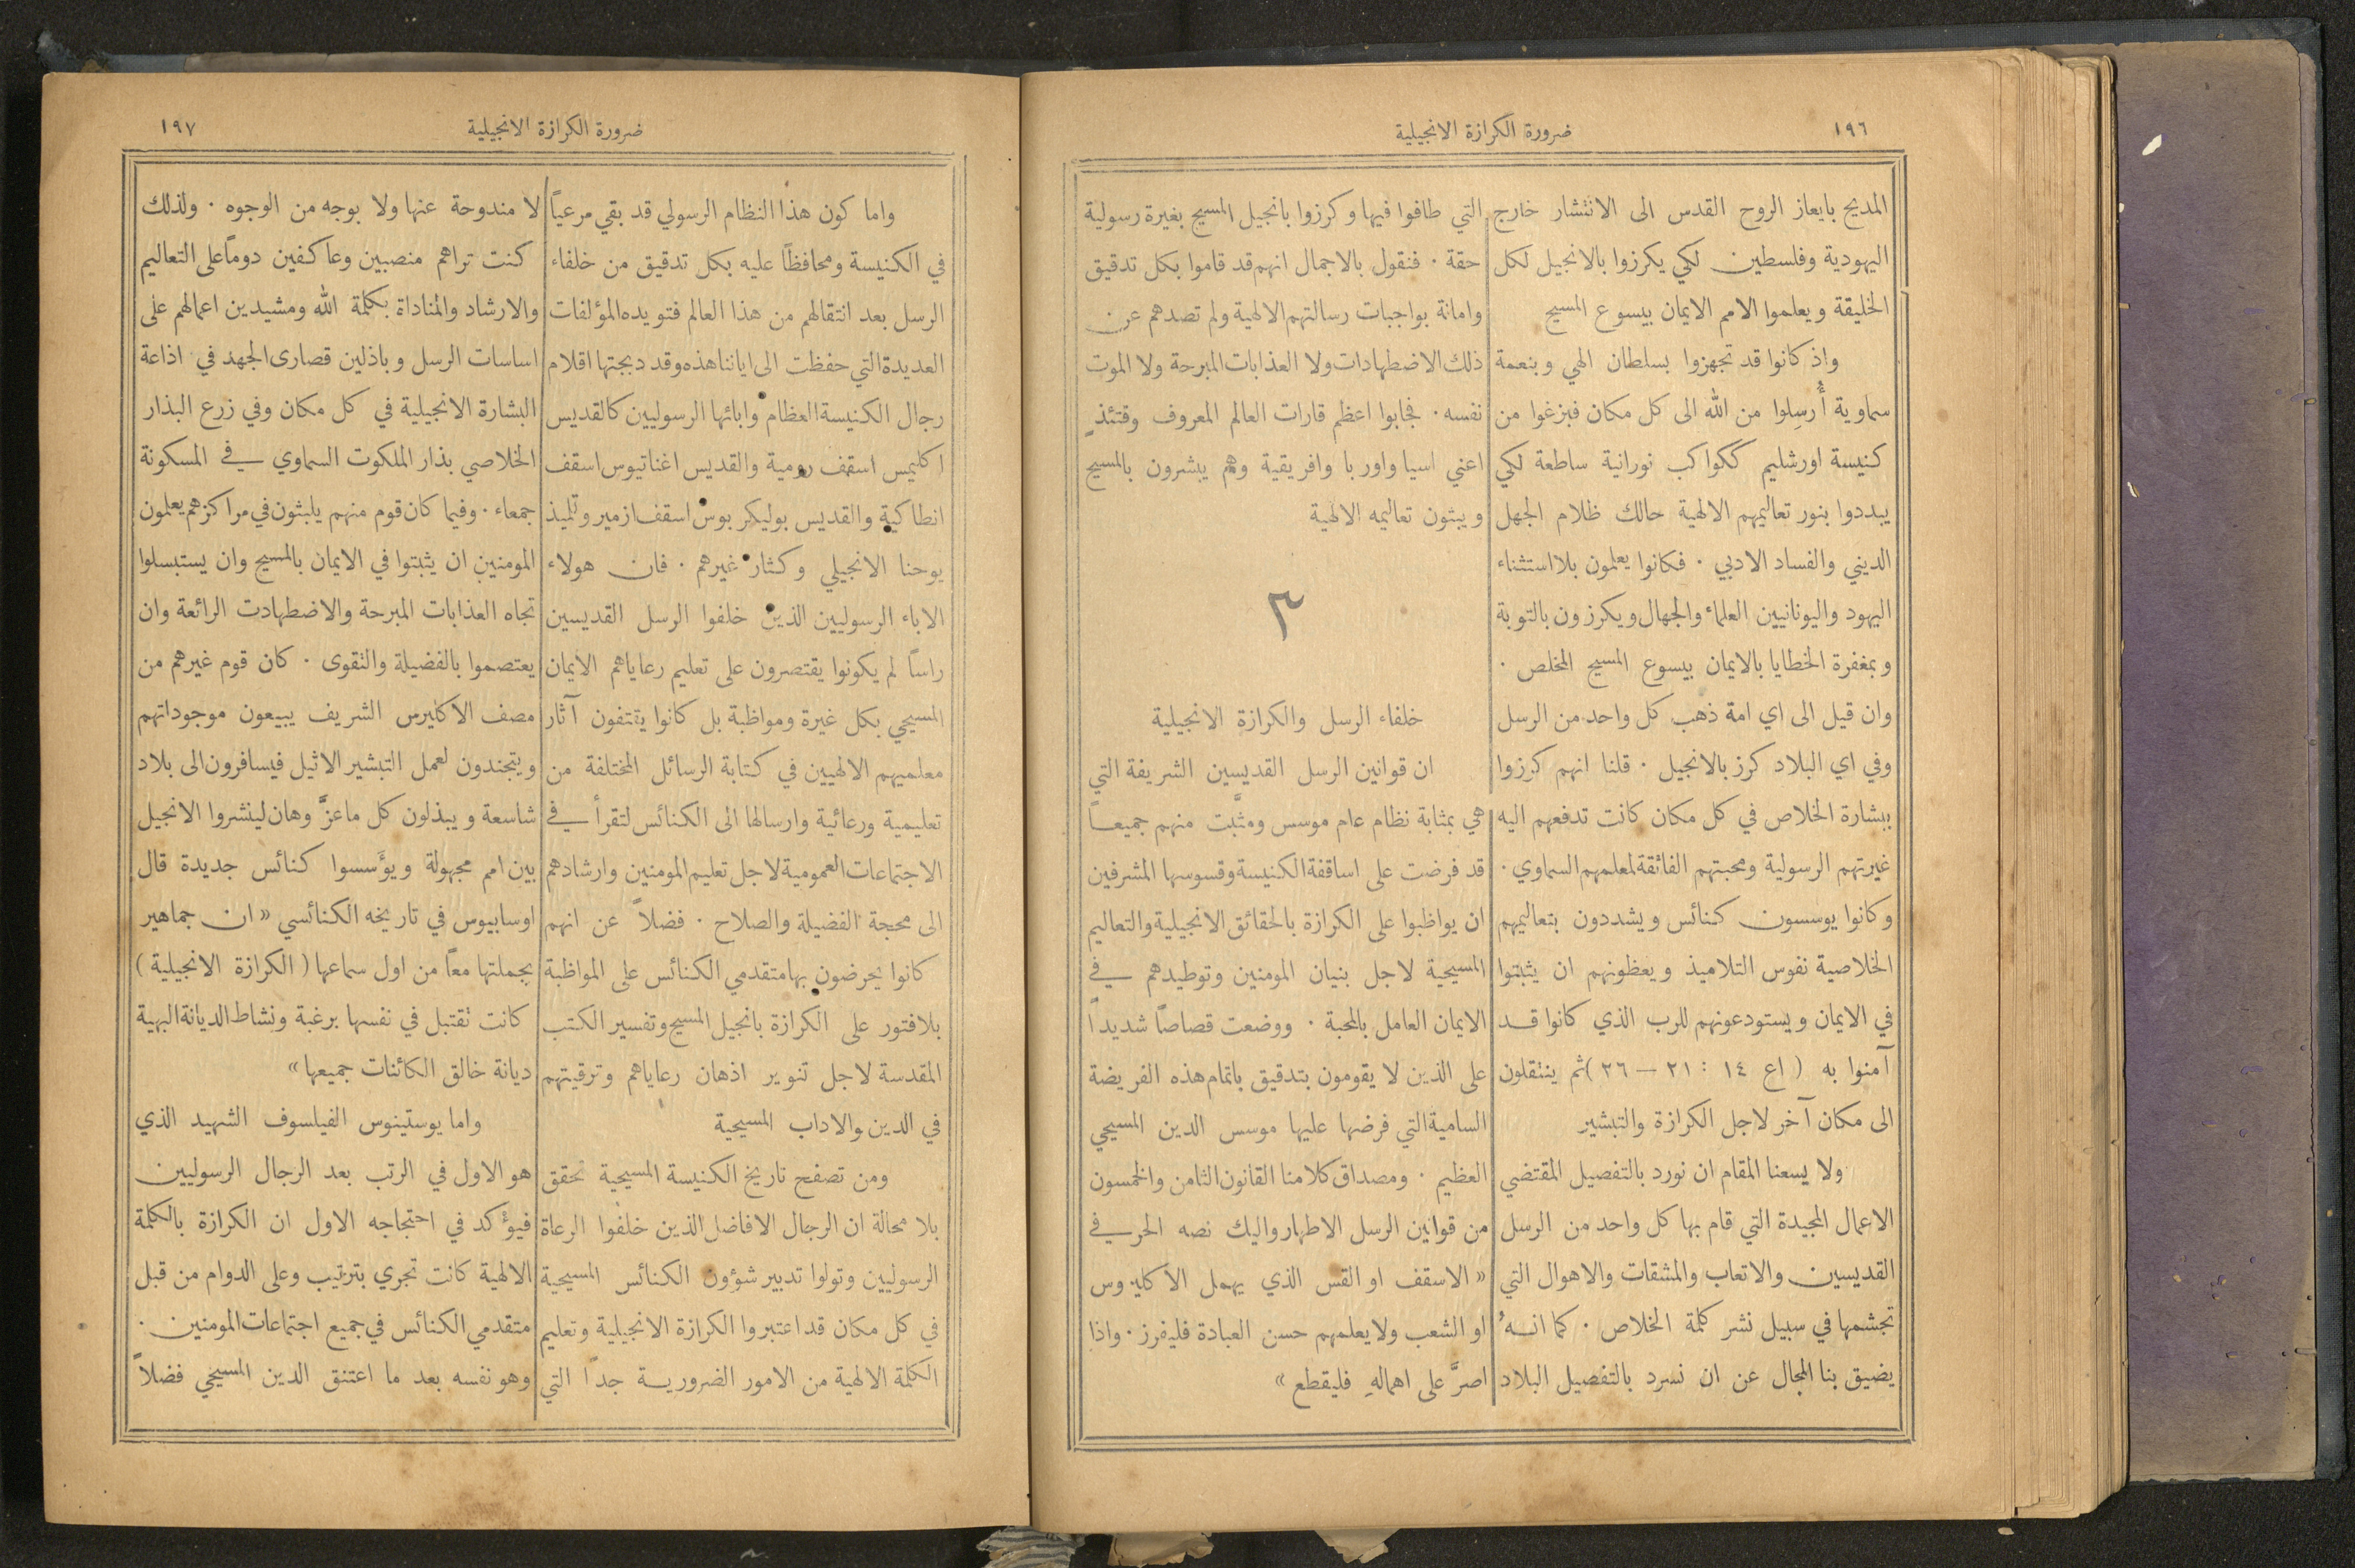 ١٩٦
ضرورة الكرازة الانجيلية
المديح بايعاز الروح القدس الى الانتشار خارج
اليهودية وفلسطين لكي يكرزوا بالانجيل لكل
الخليقة ويعلموا الامم الايمان بيسوع المسيح
واذ كانوا قد تجهزوا بسلطان الهي وبنعمة
سماوية أُرسِلوا من الله الى كل مكان فبزغوا من
كنيسة اورشليم ككواكب نورانية ساطعة لكي
يبددوا بنور تعاليمهم الالهية حالك ظلام الجهل
الديني والفساد الادبي . فكانوا يعلمون بلا استثناء
اليهود واليونانيين العلماء والجهال ويكرزون بالتوبة
وبمغفرة الخطايا بالايمان بيسوع المسيح المخلص .
وان قيل الى اي امة ذهب كل واحد من الرسل
وفي اي البلاد كرز بالانجيل . قلنا انهم كرزوا
ببشارة الخلاص في كل مكان كانت تدفعهم اليه
غيرتهم الرسولية ومحبتهم الفائقة لمعلمهم السماوي .
وكانوا يوسسون كنائس ويشددون بتعاليمهم
الخلاصية نفوس التلاميذ ويعظونهم ان يثبتوا
في الايمان ويستودعونهم للرب الذي كانوا قد
آمنوا به ( اع ١٤ : ٢١ – ٢٦ ) ثم ينتقلون
الى مكان آخر لاجل الكرازة والتبشير
ولا يسعنا المقام ان نورد بالتفصيل المقتضي
الاعمال المجيدة التي قام بها كل واحد من الرسل
القديسين والاتعاب والمشقات والاهوال التي
تجشمها في سبيل نشر كلمة الخلاص . كما انهُ
يضيق بنا المجال عن ان نسرد بالتفصيل البلاد
التي طافوا فيها وكرزوا بانجيل المسيح بغيرة رسولية
حقة . فنقول بالاجمال انهم قد قاموا بكل تدقيق
وامانة بواجبات رسالتهم الالهية ولم تصدهم عن
ذلك الاضطهادات ولا العذابات المبرحة ولا الموت
نفسه . فجابوا اعظم قارات العالم المعروف وقتئذٍ
اعني اسيا واوربا وافريقية وهم يبشرون بالمسيح
ويبثون تعاليمه الالهية
٣
خلفاء الرسل والكرازة الانجيلية
ان قوانين الرسل القديسين الشريفة التي
هي بمثابة نظام عام موسس ومثبَّت منهم جميعاً
قد فرضت على اساقفة الكنيسة وقسوسها المشرفين
ان يواظبوا على الكرازة بالحقائق الانجيلية والتعاليم
المسيحية لاجل بنيان المومنين وتوطيدهم في
الايمان العامل بالمحبة . ووضعت قصاصاً شديداً
على الذين لا يقومون بتدقيق باتمام هذه الفريضة
السامية التي فرضها عليها موسس الدين المسيحي
العظيم . ومصداق كلامنا القانون الثامن والخمسون
من قوانين الرسل الاطهار واليك نصه الحرفي
« الاسقف او القس الذي يهمل الاكليروس
او الشعب ولا يعلمهم حسن العبادة فليفرز . واذا
اصرَّ على اهمالهِ فليقطع »
ضرورة الكرازة الانجيلية
١٩٧
واما كون هذا النظام الرسولي قد بقي مرعياً
في الكنيسة ومحافظاً عليه بكل تدقيق من خلفاء
الرسل بعد انتقالهم من هذا العالم فتويده المؤلفات
العديدة التي حفظت الى ايامنا هذه وقد دبجتها اقلام
رجال الكنيسة العظام وابائها الرسوليين كالقديس
اكليمس اسقف رومية والقديس اغناتيوس اسقف
انطاكية والقديس بوليكربوس اسقف ازمير وتلميذ
يوحنا الانجيلي وكثار غيرهم . فان هولاء
الاباء الرسوليين الذين خلفوا الرسل القديسين
راساً لم يكونوا يقتصرون على تعليم رعاياهم الايمان
المسيحي بكل غيرة ومواظبة بل كانوا يقتفون آثار
معلميهم الالهيين في كتابة الرسائل المختلفة من
تعليمية ورعائية وارسالها الى الكنائس لتقرأ في
الاجتماعات العمومية لاجل تعليم المومنين وارشادهم
الى محجة الفضيلة والصلاح . فضلاً عن انهم
كانوا يحرضون بها متقدمي الكنائس على المواظبة
بلا فتور على الكرازة بانجيل المسيح وتفسير الكتب
المقدسة لاجل تنوير اذهان رعاياهم وترقيتهم
في الدين والاداب المسيحية
ومن تصفح تاريخ الكنيسة المسيحية تحقق
بلا محالة ان الرجال الافاضل الذين خلفوا الرعاة
الرسوليين وتولوا تدبير شؤون الكنائس المسيحية
في كل مكان قد اعتبروا الكرازة الانجيلية وتعليم
الكلمة الالهية من الامور الضرورية جداً التي
لا مندوحة عنها ولا بوجه من الوجوه . ولذلك
كنت تراهم منصبين وعاكفين دوماً على التعاليم
والارشاد والمناداة بكلمة الله ومشيدين اعمالهم على
اساسات الرسل وباذلين قصارى الجهد في اذاعة
البشارة الانجيلية في كل مكان وفي زرع البذار
الخلاصي بذار الملكوت السماوي في المسكونة
جمعاء . وفيما كان قوم منهم يلبثون في مراكزهم يعلمون
المومنين ان يثبتوا في الايمان بالمسيح وان يستبسلوا
تجاه العذابات المبرحة والاضطهادت الرائعة وان
يعتصموا بالفضيلة والتقوى . كان قوم غيرهم من
مصف الاكليرس الشريف يبيعون موجوداتهم
ويتجندون لعمل التبشير الاثيل فيسافرون الى بلاد
شاسعة ويبذلون كل ما عزَّ وهان لينشروا الانجيل
بين امم مجهولة ويؤسسوا كنائس جديدة قال
اوسابيوس في تاريخه الكنائسي « ان جماهير
بجملتها معاً من اول سماعها ( الكرازة الانجيلية )
كانت تقتبل في نفسها برغبة ونشاط الديانة البهية
ديانة خالق الكائنات جميعها »
واما يوستينوس الفيلسوف الشهيد الذي
هو الاول في الرتب بعد الرجال الرسوليين
فيؤكد في احتجاجه الاول ان الكرازة بالكلمة
الالهية كانت تجري بترتيب وعلى الدوام من قبل
متقدمي الكنائس في جميع اجتماعات المومنين .
وهو نفسه بعد ما اعتنق الدين المسيحي فضلاً